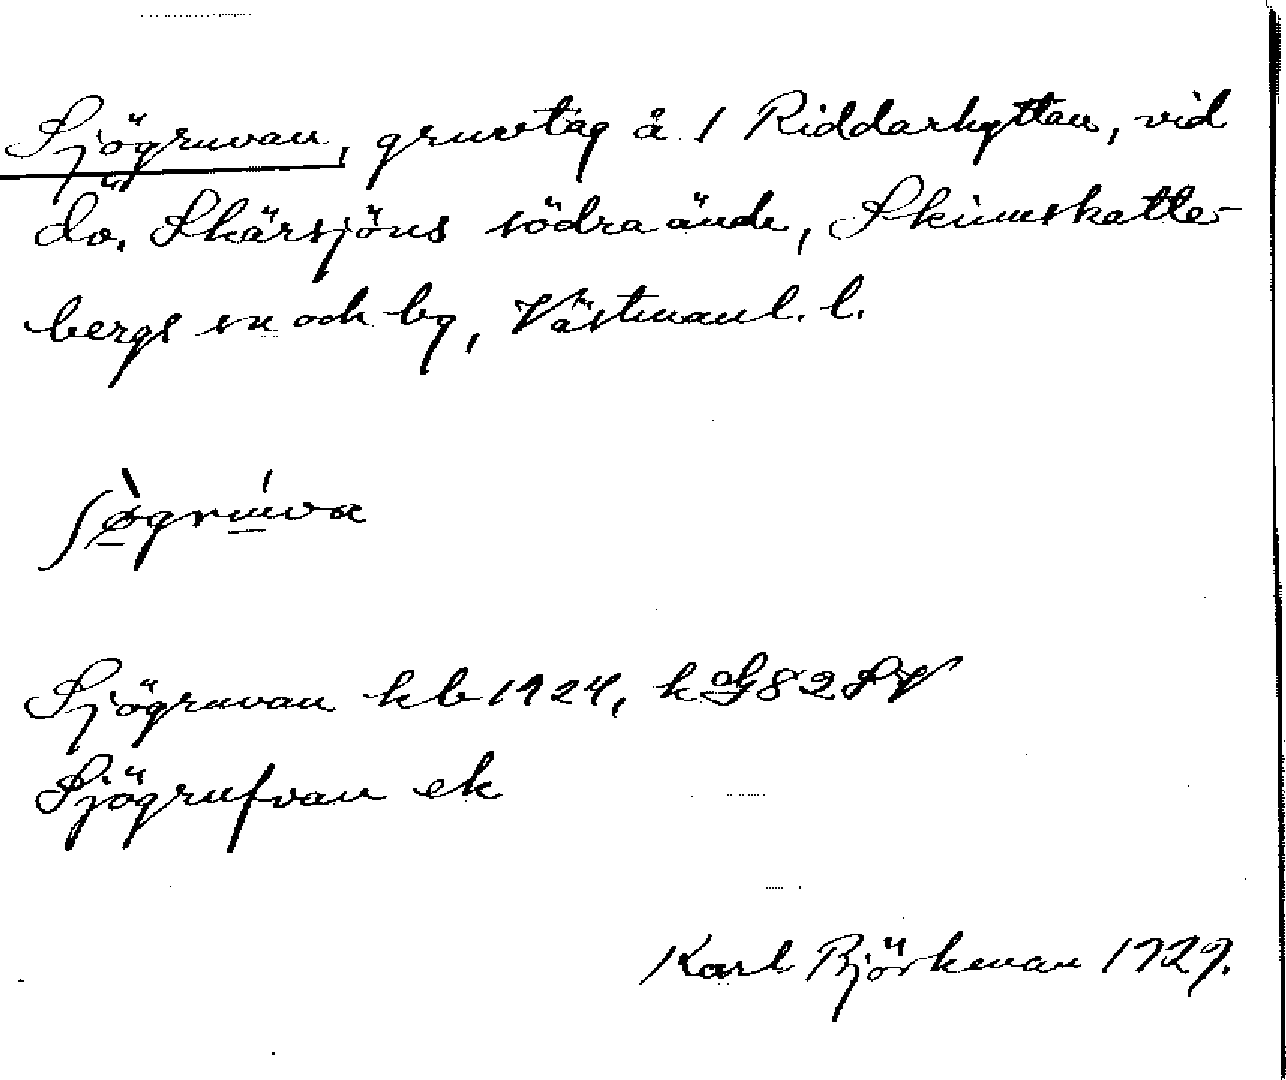 Sjögruvan, gruvtag å 1 Riddarhyttan, vid
sö. Skärsjöns södra ände, Skinnskatte-
bergs sn och by, Västmanl. l.
ʃø̀gruva
Sjögruvan kb 1924, k G82SV
Sjögrufvan ek
Karl Björkman 1929.